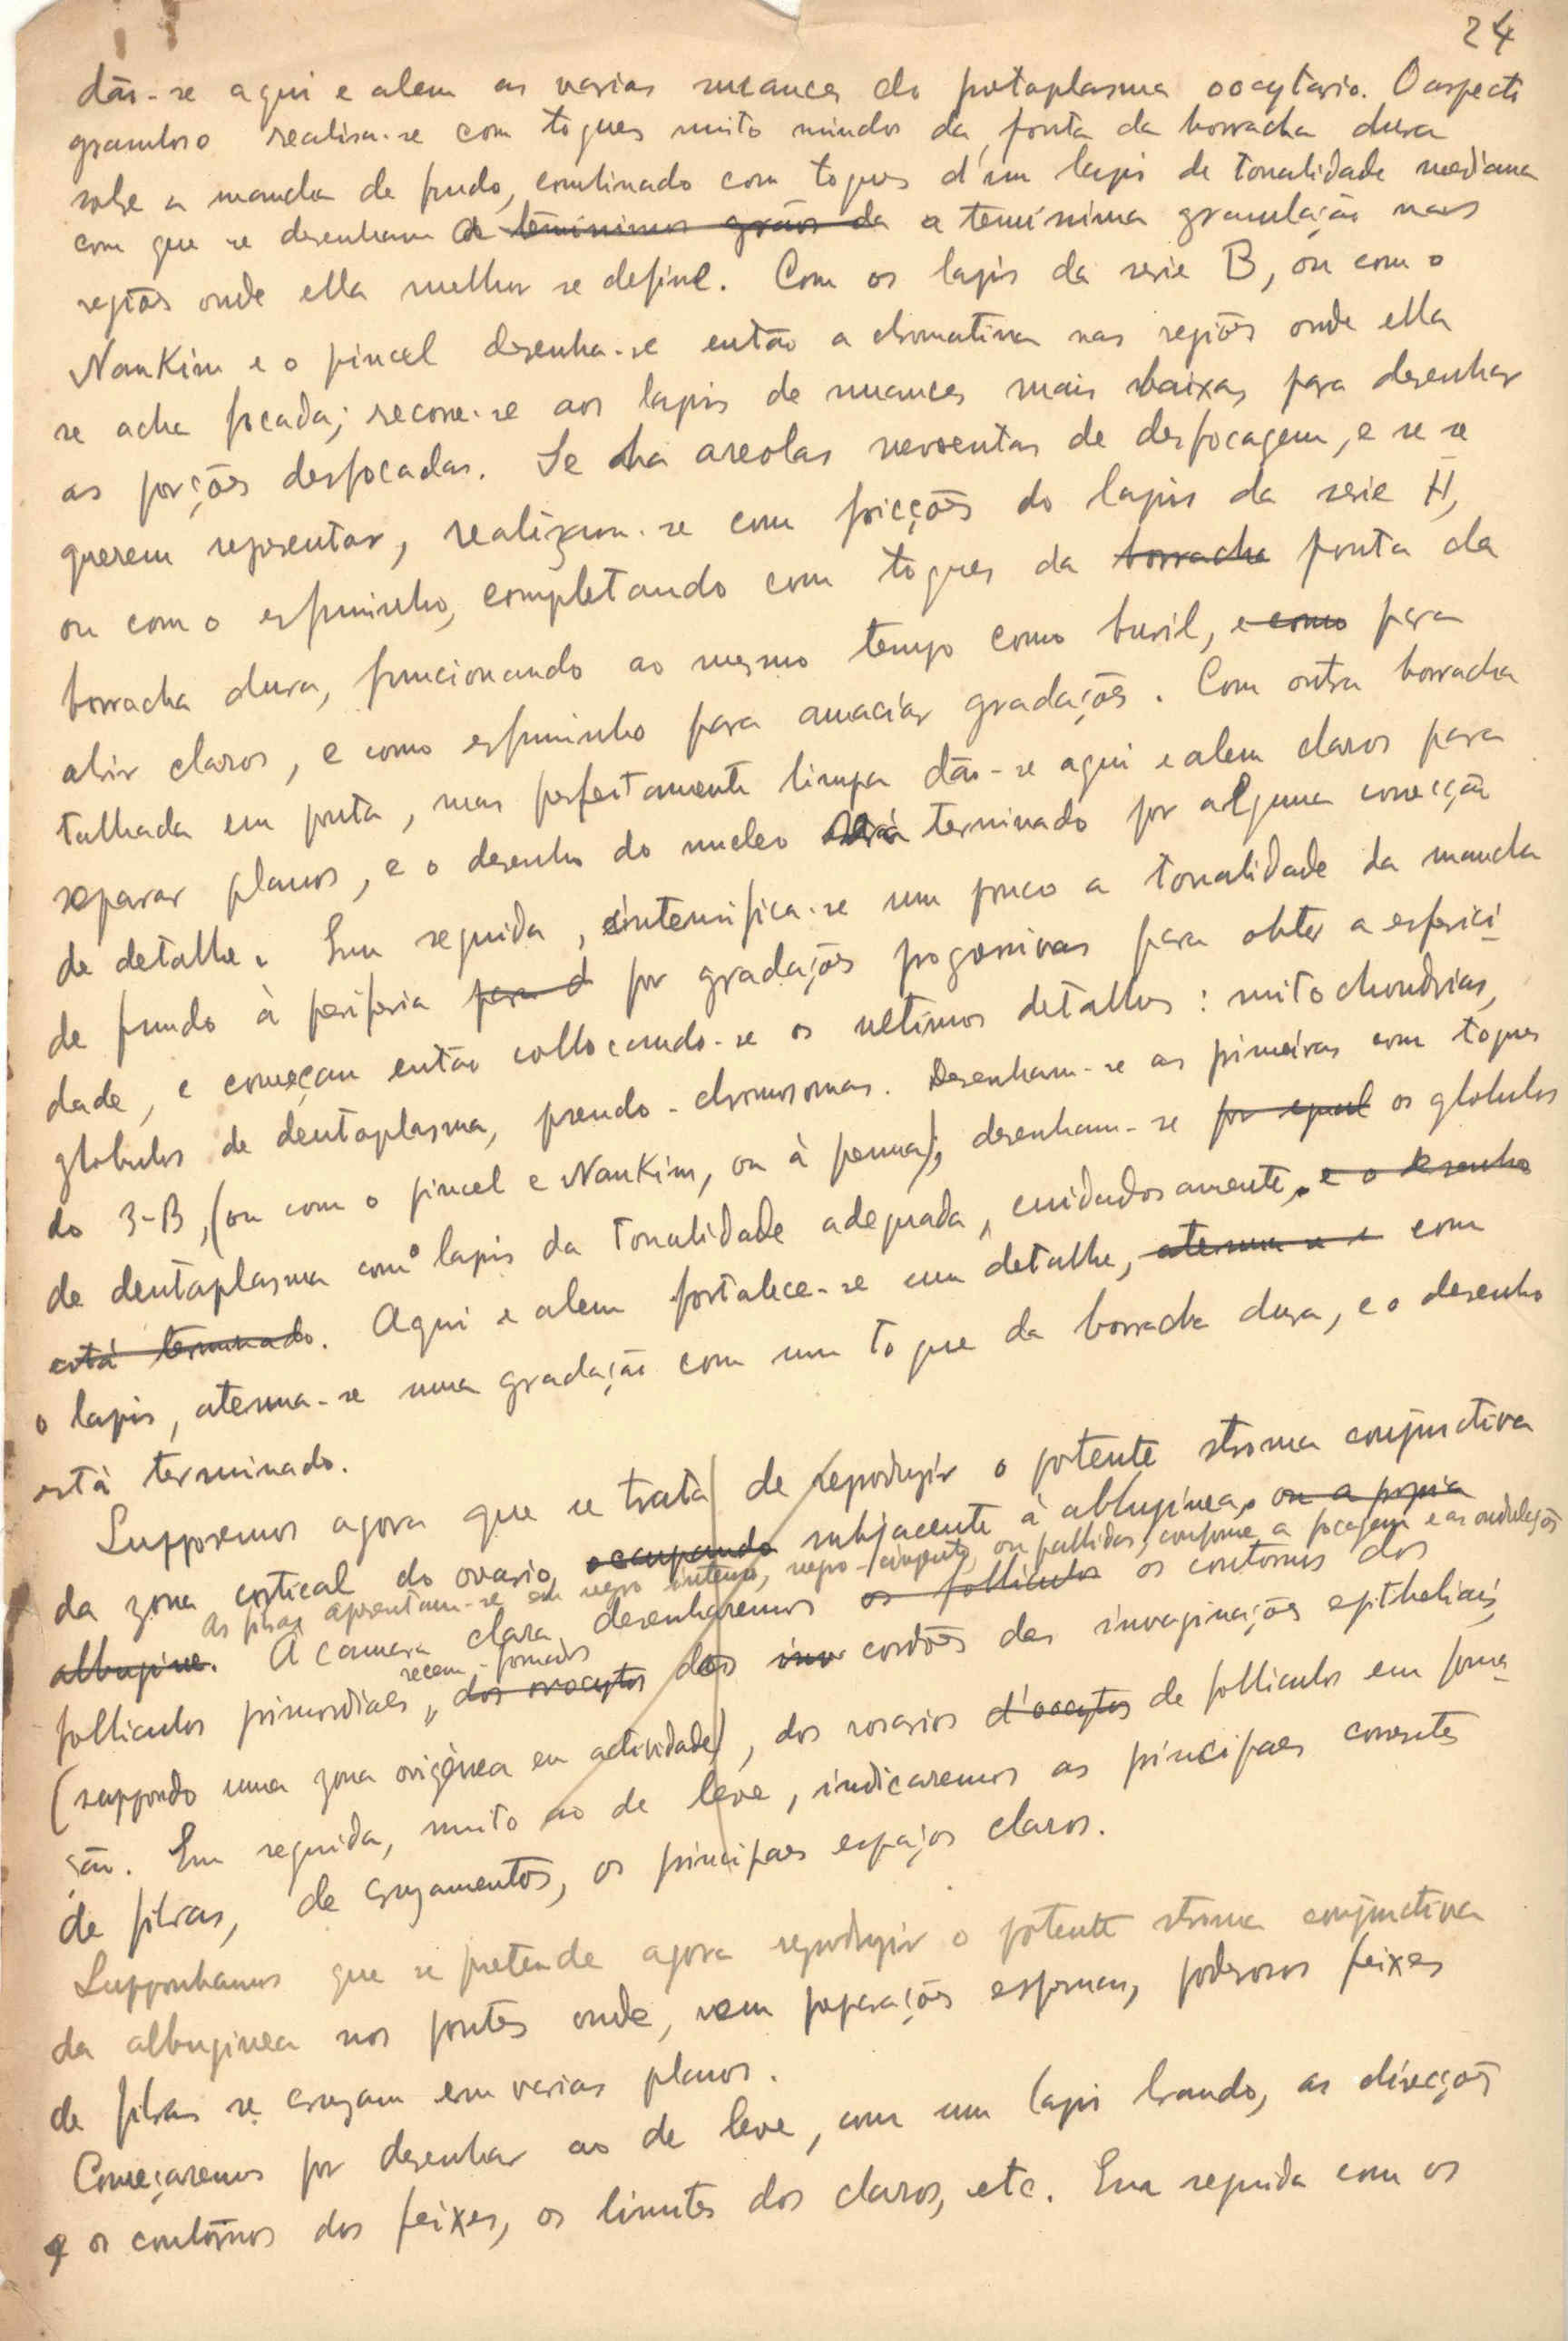 24
dão-se aqui e alem as varias nuances do protoplasma oocytario. O aspecto
granuloso realisa-se com toques muito miudos da ponta da borracha dura
sobre a mancha de fundo, combinado com toques d'um lapis de tonalidade mediana
com que se desenham os tenuissimos grãos da a tenuissima granulação nas
regiões onde ella melhor se define. Com os lapis da serie B, ou com o
NanKim e o pincel desenha-se então a chromatina nas regiões onde ella
se acha focada; recorre-se aos lapis de nuances mais baixas para desenhar
as porções desfocadas. Se ha areolas nevoentas de desfocagem, e se se
querem representar, realizam-se com fricções do lapis da serie H,
ou com o esfuminho, completando com toques da borracha ponta da
borracha dura, funcionando ao mesmo tempo como buril, e como para
abrir claros, e como esfuminho para amaciar gradações. Com outra borracha
talhada em ponta, mas perfeitamente limpa dão-se aqui e alem claros para
separar planos, e o desenho do nucleo será terminado por alguma correcção
de detalhe. Em seguida, intensifica-se um pouco a tonalidade da mancha
de fundo à periferia para d por gradações progressivas para obter a esferici-
dade, e começam então collocando-se os ultimos detalhes: mitochondrias,
globulos de deutoplasma, pseudo-chromosomas. Desenham-se as primeiras com toques
do 3-B, (ou com o pincel e NanKim, ou à penna); desenham-se por egual os globulos
de deutoplasma com o lapis da tonalidade adequada, cuidadosamente, e o desenho
está terminado. Aqui e alem fortalece-se um detalhe, atenua-se com
o lapis, atenua-se uma gradação com um toque da borracha dura, e o desenho
está terminado.
Supporemos agora que se trata de reproduzir o potente stroma conjunctiva
da zona cortical do ovario, occupando subjacente à albuginea, ou a propria
As fibras apresentam-se em negro intenso, negro-cinzento, ou pallidas, conforme a focagem e as ondulações
albuginea. A camara clara desenharemos os folliculos os contornos dos
recem-formados
folliculos primordiaes, dos ovocytos dos inv cordões das invaginações epitheliais,
(suppondo uma zona origénea em actividade), dos rosarios d'oocytos de folliculos em forma-
ção. Em seguida, muito ao de leve, indicaremos as principaes correntes
de fibras, de cruzamentos, os principaes espaços claros.
Supponhamos que se pretende agora reproduzir o potente stroma conjunctiva
da albuginea nos pontos onde, nem preparações espessas, poderosos feixes
de fibras se cruzam em varios planos.
Começaremos por desenhar ao de leve, com um lapis brando, as direcções
e os contornos dos feixes, os limites dos claros, etc. Em seguida com os